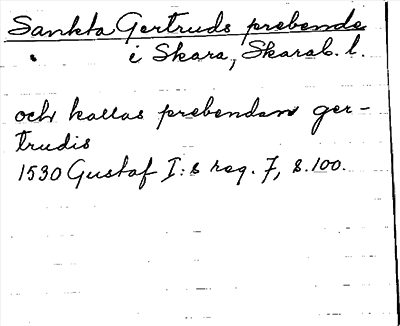 Sankta Gertruds prebende
i Skara, Skarab. l.
och kallas prebendan ger-
trudis
1530 Gustaf I:s reg. 7, s. 100.